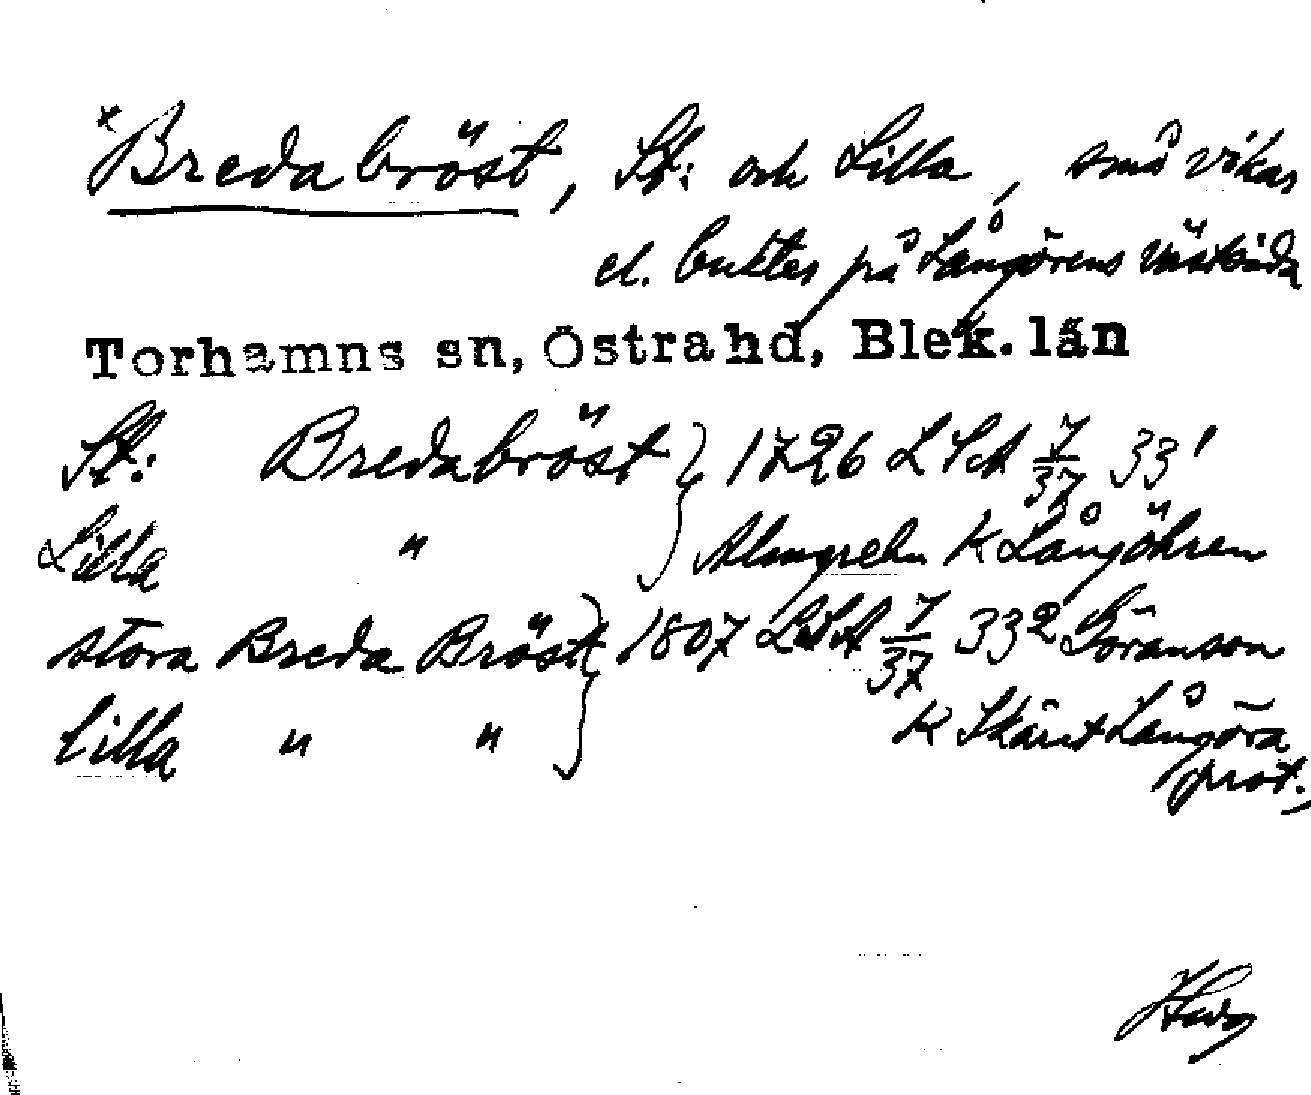 *Bredabröst, St: och Lilla, små vikar
el. bukter på Långörens västsida
Torhamns sn, Östra hd, Blek. län
St: Bredabröst } 1726 LSA 7/37 33¹
Lilla " } Almgrehn K Långöhren
stora Breda Bröst } 1807 LSA 7/37 33² Göranson
lilla " " } K Skäret Långöra
prot.,